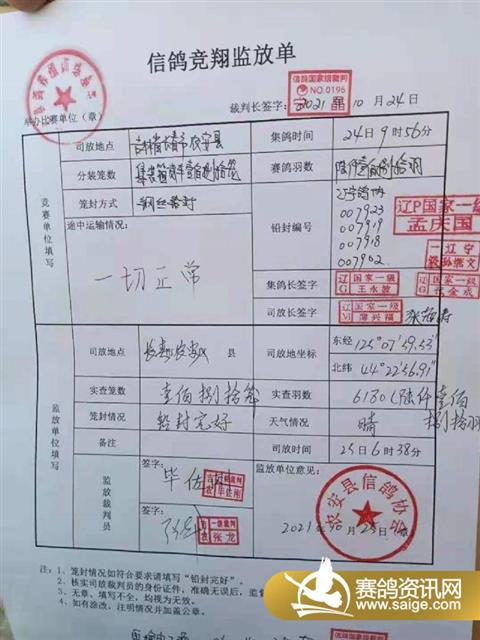 信鸽竞翔监放单
信鸽国家级裁判
NO.0196
举办比赛单位（章）
裁判长签字：
2021 年 10 月 24日
竞赛单位填写
司放地点
吉林省长春市农安县
集鸽时间
24日9时56分
分装笼数
赛鸽羽数
陆仟壹佰捌拾羽
笼封方式
钢丝铅封
铅封编号
辽宁鸽协
007923
007919
007918
007902
辽P国家一级
孟庆国
途中运输情况：
一切正常
集鸽长签字
辽G 国家一级
王永波
司放长签字
国家一级
薄兴福
监放单位填写
司放地点
长春农安 县
司放地坐标
东经
125°07′59.53″
北纬
44°22′56.91″
实查笼数
壹佰捌拾笼
实查羽数
6180（陆仟壹佰捌拾羽
笼封情况
铅封完好
天气情况
晴
备注
司放时间
25日6时38分
监放裁判员
签字：
毕佐刚
签字：
一级裁判
张龙
监放单位意见：
农安县信鸽协会
2021年10月25日
注：1、笼封情况如符合要求请填写“铅封完好”。
2、核实司放裁判员的身份证件，准确无误后，监
3、无章、填写不全，均视为无效。
4、如有涂改，注明情况并加盖公章。
赛鸽资讯网
www.saige.com